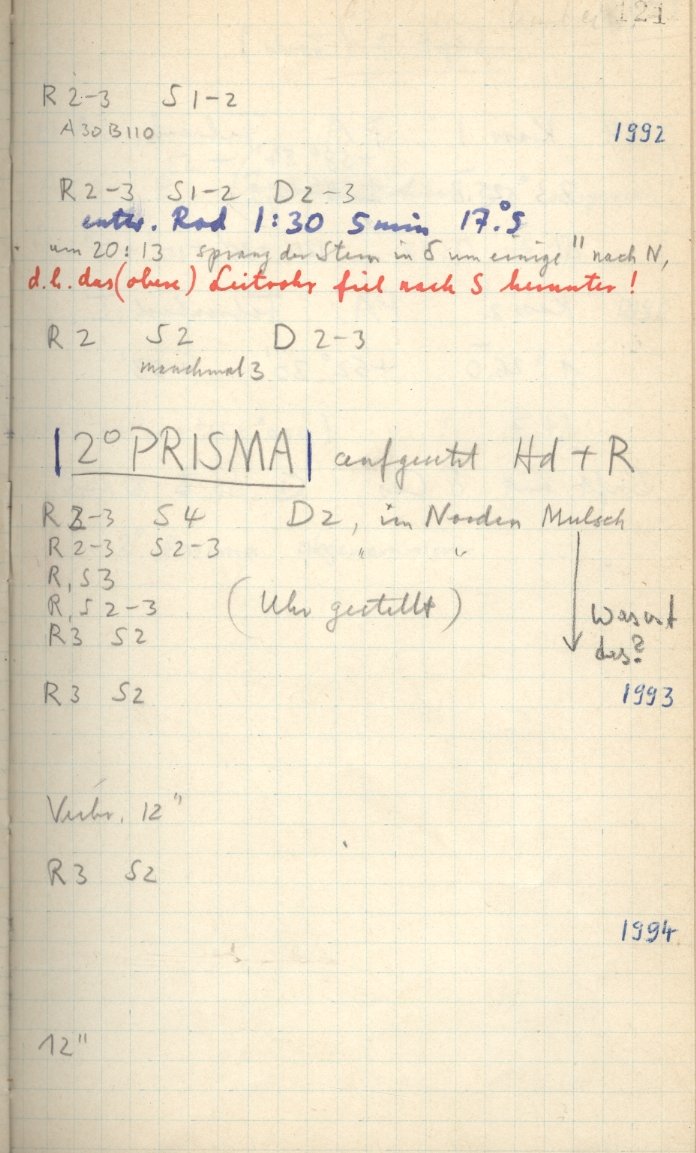 121
R 2-3 S 1-2
A30B110
1992
R 2-3 S 1-2 D 2-3
entw. Rod 1:30 5 min 17.°5
um 20:13 sprang der Stern in δ um einige " nach N,
d.h. das (obere) Leitrohr fiel nach S herunter!
R 2 S 2 D 2-3
manchmal 3
|2° PRISMA| aufgesetzt Hd + R
R 2-3 S 4 D2, im Norden Mulsch
R 2-3 S 2-3 " "
R, S 3
R, S 2-3 (Uhr gestellt)
Was ist
das?
R 3 S 2
R 3 S 2
1993
Verbr. 12"
R 3 S 2
1994
12"